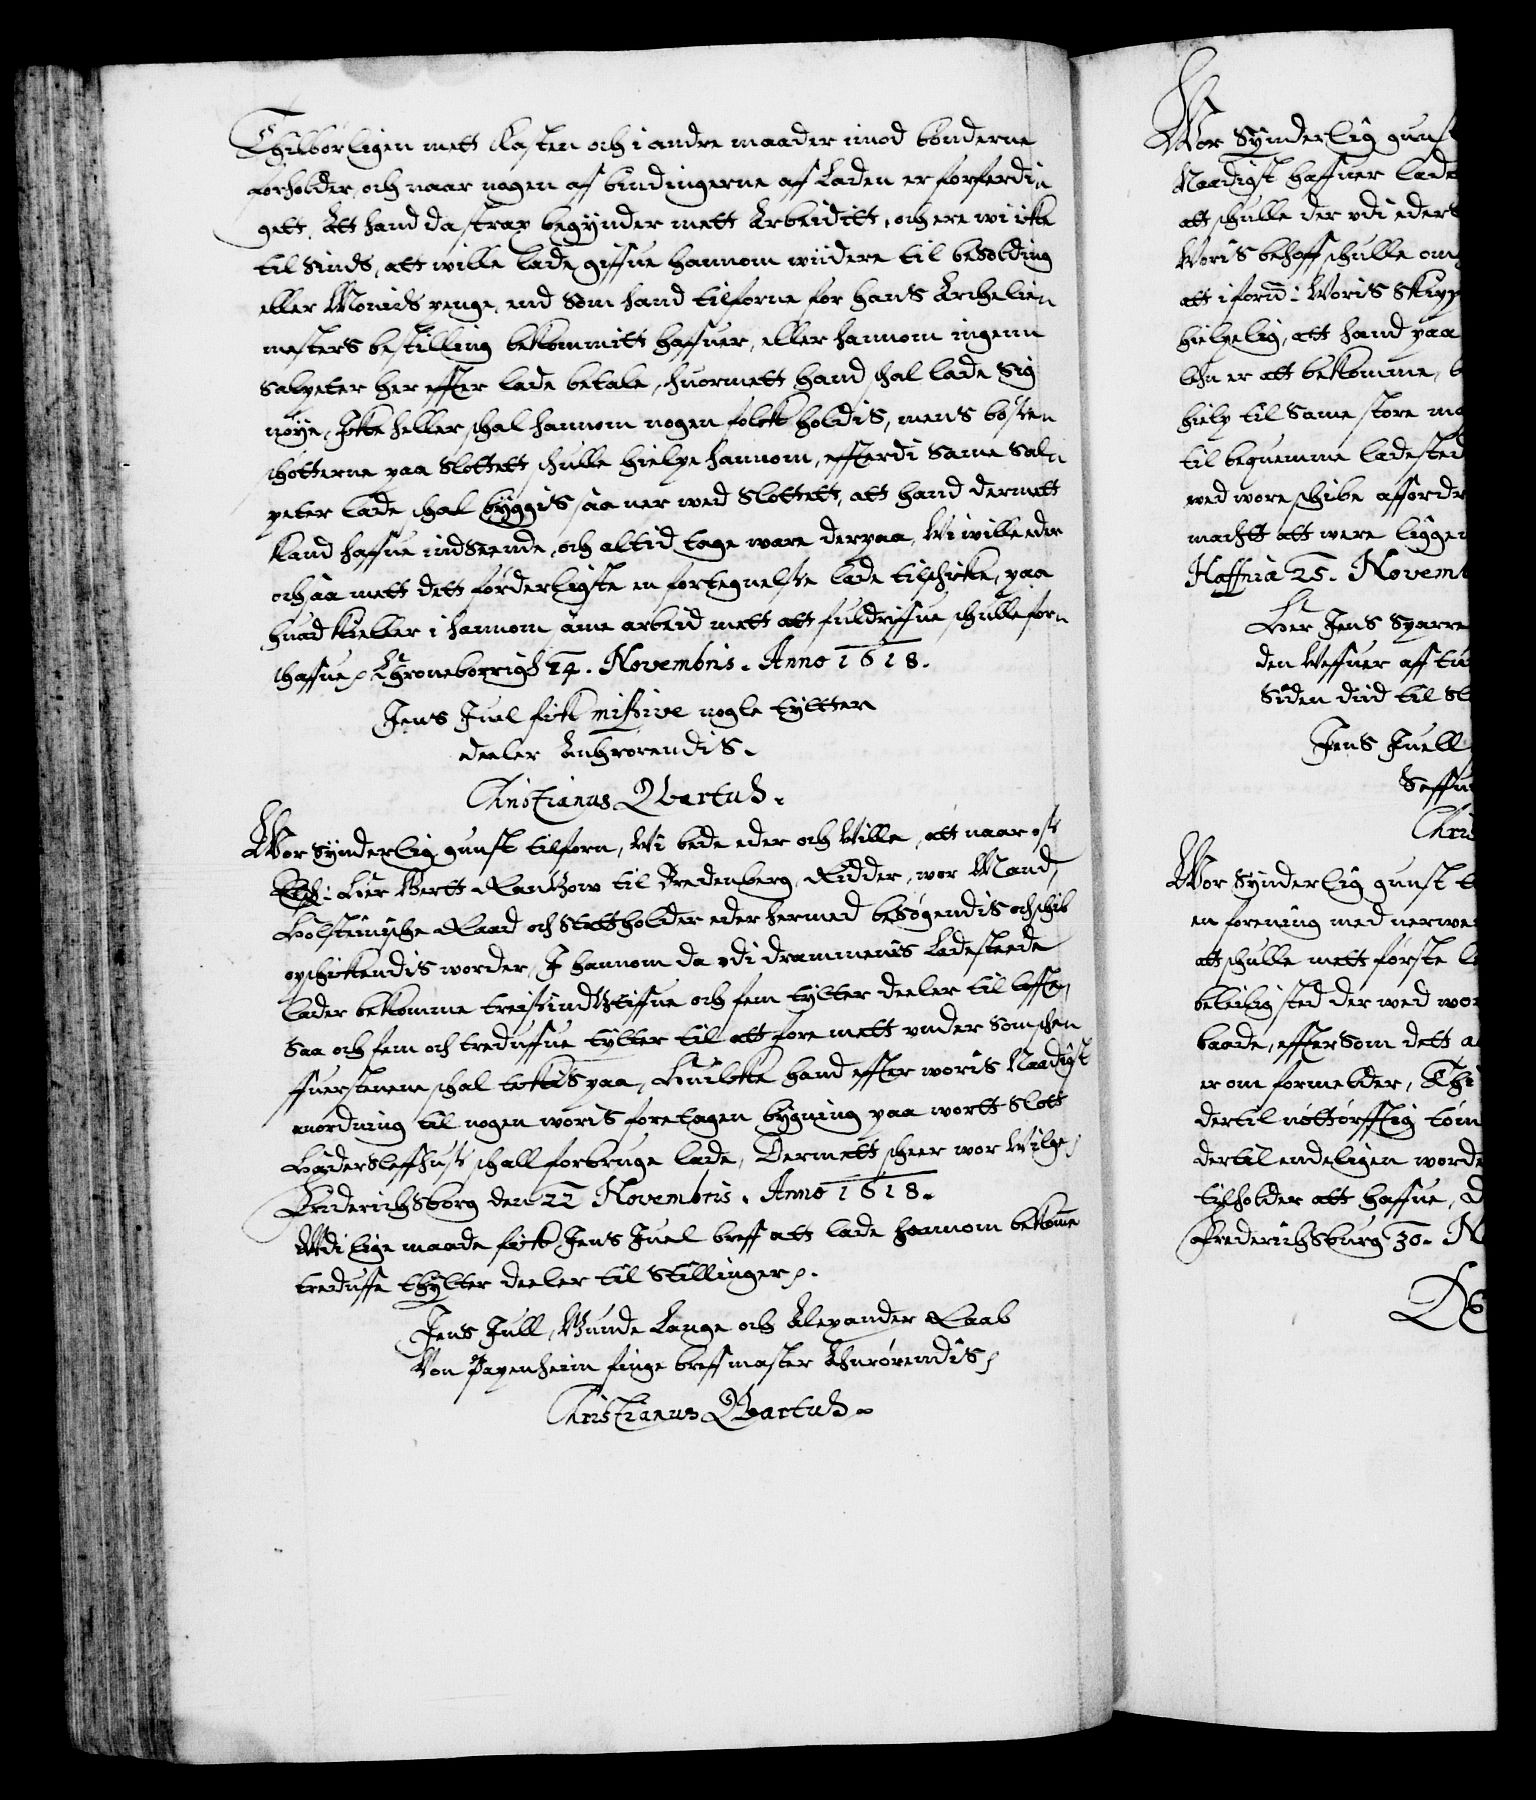 Thilbørligen mett Kasten och i andre maader imod bønderne
forholder, och naar nogen af bindingerne aff Laden er forferdi-
gett. Att hand da strax begynder mett Arbeiditt, och ere wii icke
til Sinds, att wille lade giffue hannom wiidere til besolding
eller Monids penge, end Som hand tilforne for hans Archelie-
mesters bestilling bekommitt haffuer, eller hannom ingenn
Salpeter her effter lade betale, huormett hand schal lade Sig
nøye, Icke heller schal hannom nogen folck holdis, mens bøssen
schøtterne paa Slottett schulle hielpe hannom, effterdi Same Sal-
peter lade schal byggis saa ner wed Slottett, att hand dermett
kand haffue indseende, och altid tage ware derpaa, Wi wille eder
ochsaa mett dett førderligste en fortegnelsse lade tilschicke, paa
huad Kieller i hannom same arbeid mett att fuldriffue schulle for-
schaffue, Chroneborrigh 14. Novembris. Anno 1618.
Jens Juel fick missive nogle tyltter
deeler Anhrorendis.
Christianus Qvartus.
Wor Synderlig gunst tilforn, Wi bede eder och Wille, att naar oss
Elsk: Her Gertt Rantzow til Bredenberg, Ridder, wor Mand,
Holsteinische Raad och Stattholder eder hermed besøgendis och schib
opschickendis worder, I hannom da vdi drammenis Ladesteede
lader bekomme treisindztiffue och fem tylter deeler til lofften
Saa och fem och treduffue tylter til att fore mett vnder Som schen
ffuerstenene schal leckis paa, Huilcke hand effter woris Naadigst
anordning til nogen woris foretagen bygning paa wortt Slott
Hadersleffhuss schall forbruge lade, Dermett scheer wor Wilge,
Friderichsborg den 22 Novembris. Anno 1618.
Wdi lige maade fick Jens Juel breff att lade hannom bekome
treduffe thylter deeler til Stillinger.
Jens Jull, Gunde Lange och Alexander Raab
Von Papenheim finge breff master Anrørendis,
Christianus Qvartus.
Wor Synderlig gunst
Naadigst haffuer lade
att schulle der vdi eders
Woris behoff schulle om
att i forn: Woris Skipp
hielpelig, att hand paa
lehn er att bekomme,
hielp til Same store
til bequemme ladested
wed wore schibe affordr
machtt att were liggen
Haffnia 25. Novem
Her Jens Sparre
den Weffuer aff
Siden did til
Jens Juell
Seffu
Chris
Wor Synderlig gunst
en forening med nerwe
att schulle mett første
beleilig sted der wed wor
baade, efftersom dett
er om formelder, Thi
dertil nøttørfftig tøm
dertil endeligen worde
tilholder att haffue,
Frederichsburg 30. N